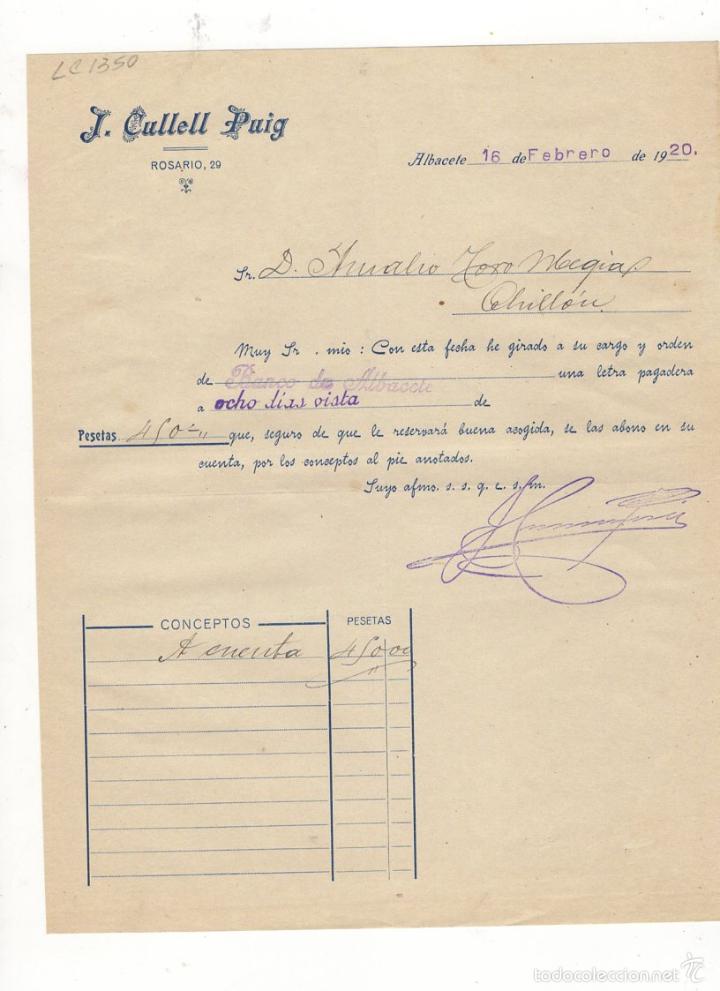 LC 1350
J. Cullell Puig
ROSARIO, 29
Albacete 16 de Febrero de 1920.
Sr. D. Amalio Toro Megias
Chillón.
Muy Sr. mio: Con esta fecha he girado a su cargo y orden
de Banco de Albacete una letra pagadera
a ocho días vista de
Pesetas 450 que, seguro de que le reservará buena acogida, se las abono en su
cuenta, por los conceptos al pie anotados.
Suyo afmo. s. s. q. e. s. m.
CONCEPTOS PESETAS
A cuenta 450 00
todocoleccion.net